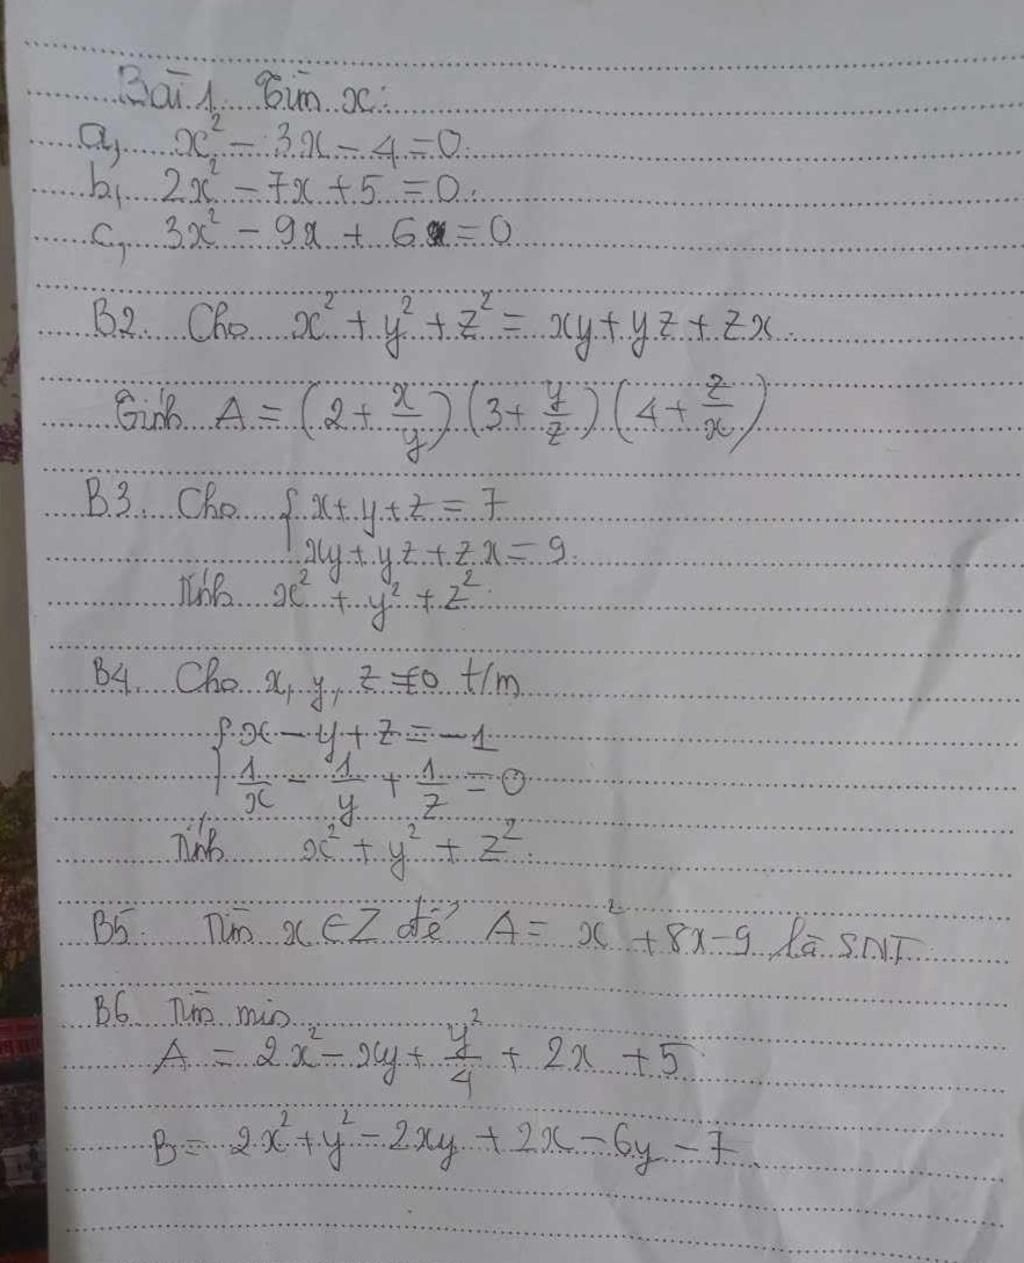 Bài 1. Tìm x:
a, x² - 3x - 4 = 0.
b, 2x² - 7x + 5 = 0.
c, 3x² - 9x + 6 = 0
B2. Cho x² + y² + z² = xy + yz + zx.
Tính A = (2 + x/y)(3 + y/z)(4 + z/x)
B3. Cho { x + y + z = 7
xy + yz + zx = 9.
Tính x² + y² + z².
B4. Cho x, y, z ≠ 0 t/m
{ x - y + z = -1
1/x - 1/y + 1/z = 0
Tính x² + y² + z².
B5. Tìm x ∈ Z để A = x² + 8x - 9 là SNT.
B6. Tìm min
A = 2x² - xy + y²/4 + 2x + 5
B = 2x² + y² - 2xy + 2x - 6y - 7